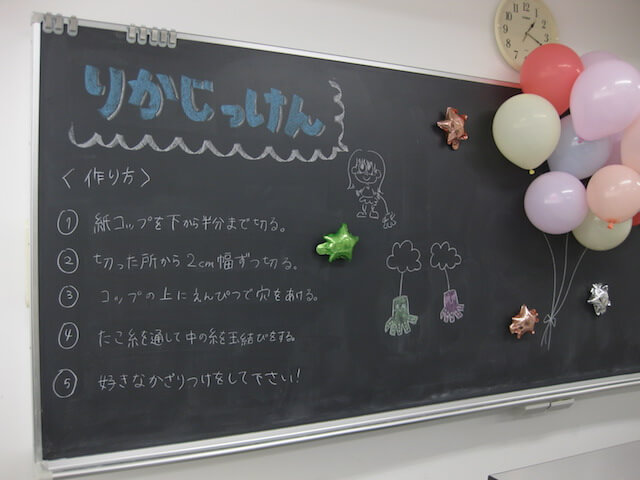 りかじっけん
〈作り方〉
① 紙コップを下から半分まで切る。
② 切った所から2cm幅ずつ切る。
③ コップの上にえんぴつで穴をあける。
④ たこ糸を通して中の糸を玉結びをする。
⑤ 好きなかざりつけをして下さい!